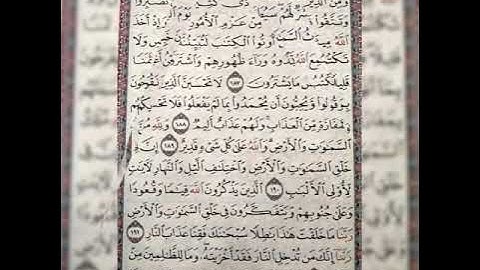 ومن الذين أذى كثيرا تصبروا
وتتقوا من عزم الأمور وإذ أخذ
الله ميثق أوتوا الكتب لتبيننه ولا
تكتمونه فنبذوه وراء ظهورهم واشتروا به ثمنا
قليلا فبئس ما يشترون ١٨٧ لا تحسبن الذين يفرحون
ويحبون أن يحمدوا بما لم يفعلوا فلا تحسبنهم
بمفازة من العذاب ولهم عذاب أليم ١٨٨ ولله ملك
السموت والأرض والله على كل شيء قدير ١٨٩ إن في
خلق السموت والأرض واختلف اليل والنهار لأيت
لأولي الألبب ١٩٠ الذين يذكرون الله قيما وقعودا
وعلى جنوبهم ويتفكرون في خلق السموت والأرض
ربنا ما خلقت هذا بطلا سبحنك فقنا عذاب النار ١٩١
ربنا إنك من تدخل النار فقد أخزيته وما للظلمين من